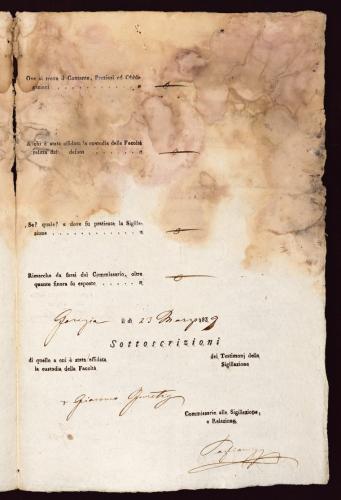 Ove si trova il Contante, Preziosi ed Obbli-
gazioni . . . . . . . . . . . . . . . . . „
A chi è stata affidata la custodia delle Facoltà
relitta dal defunto . . . . . . . . . . . „
Se? quale? e dove fu praticata la Sigilla-
zione . . . . . . . . . . . . . . . . . . „
Rimarche da farsi dal Commissario, oltre
quanto finora fu esposto . . . . . . . . . „
Gorizia li di 23 Marzo 1829
Sottoscrizioni
di quello a cui è stata affidata
la custodia della Facoltà
dei Testimonj della
Sigillazione
Giacomo
Commissario alla Sigillazione,
e Relazione.